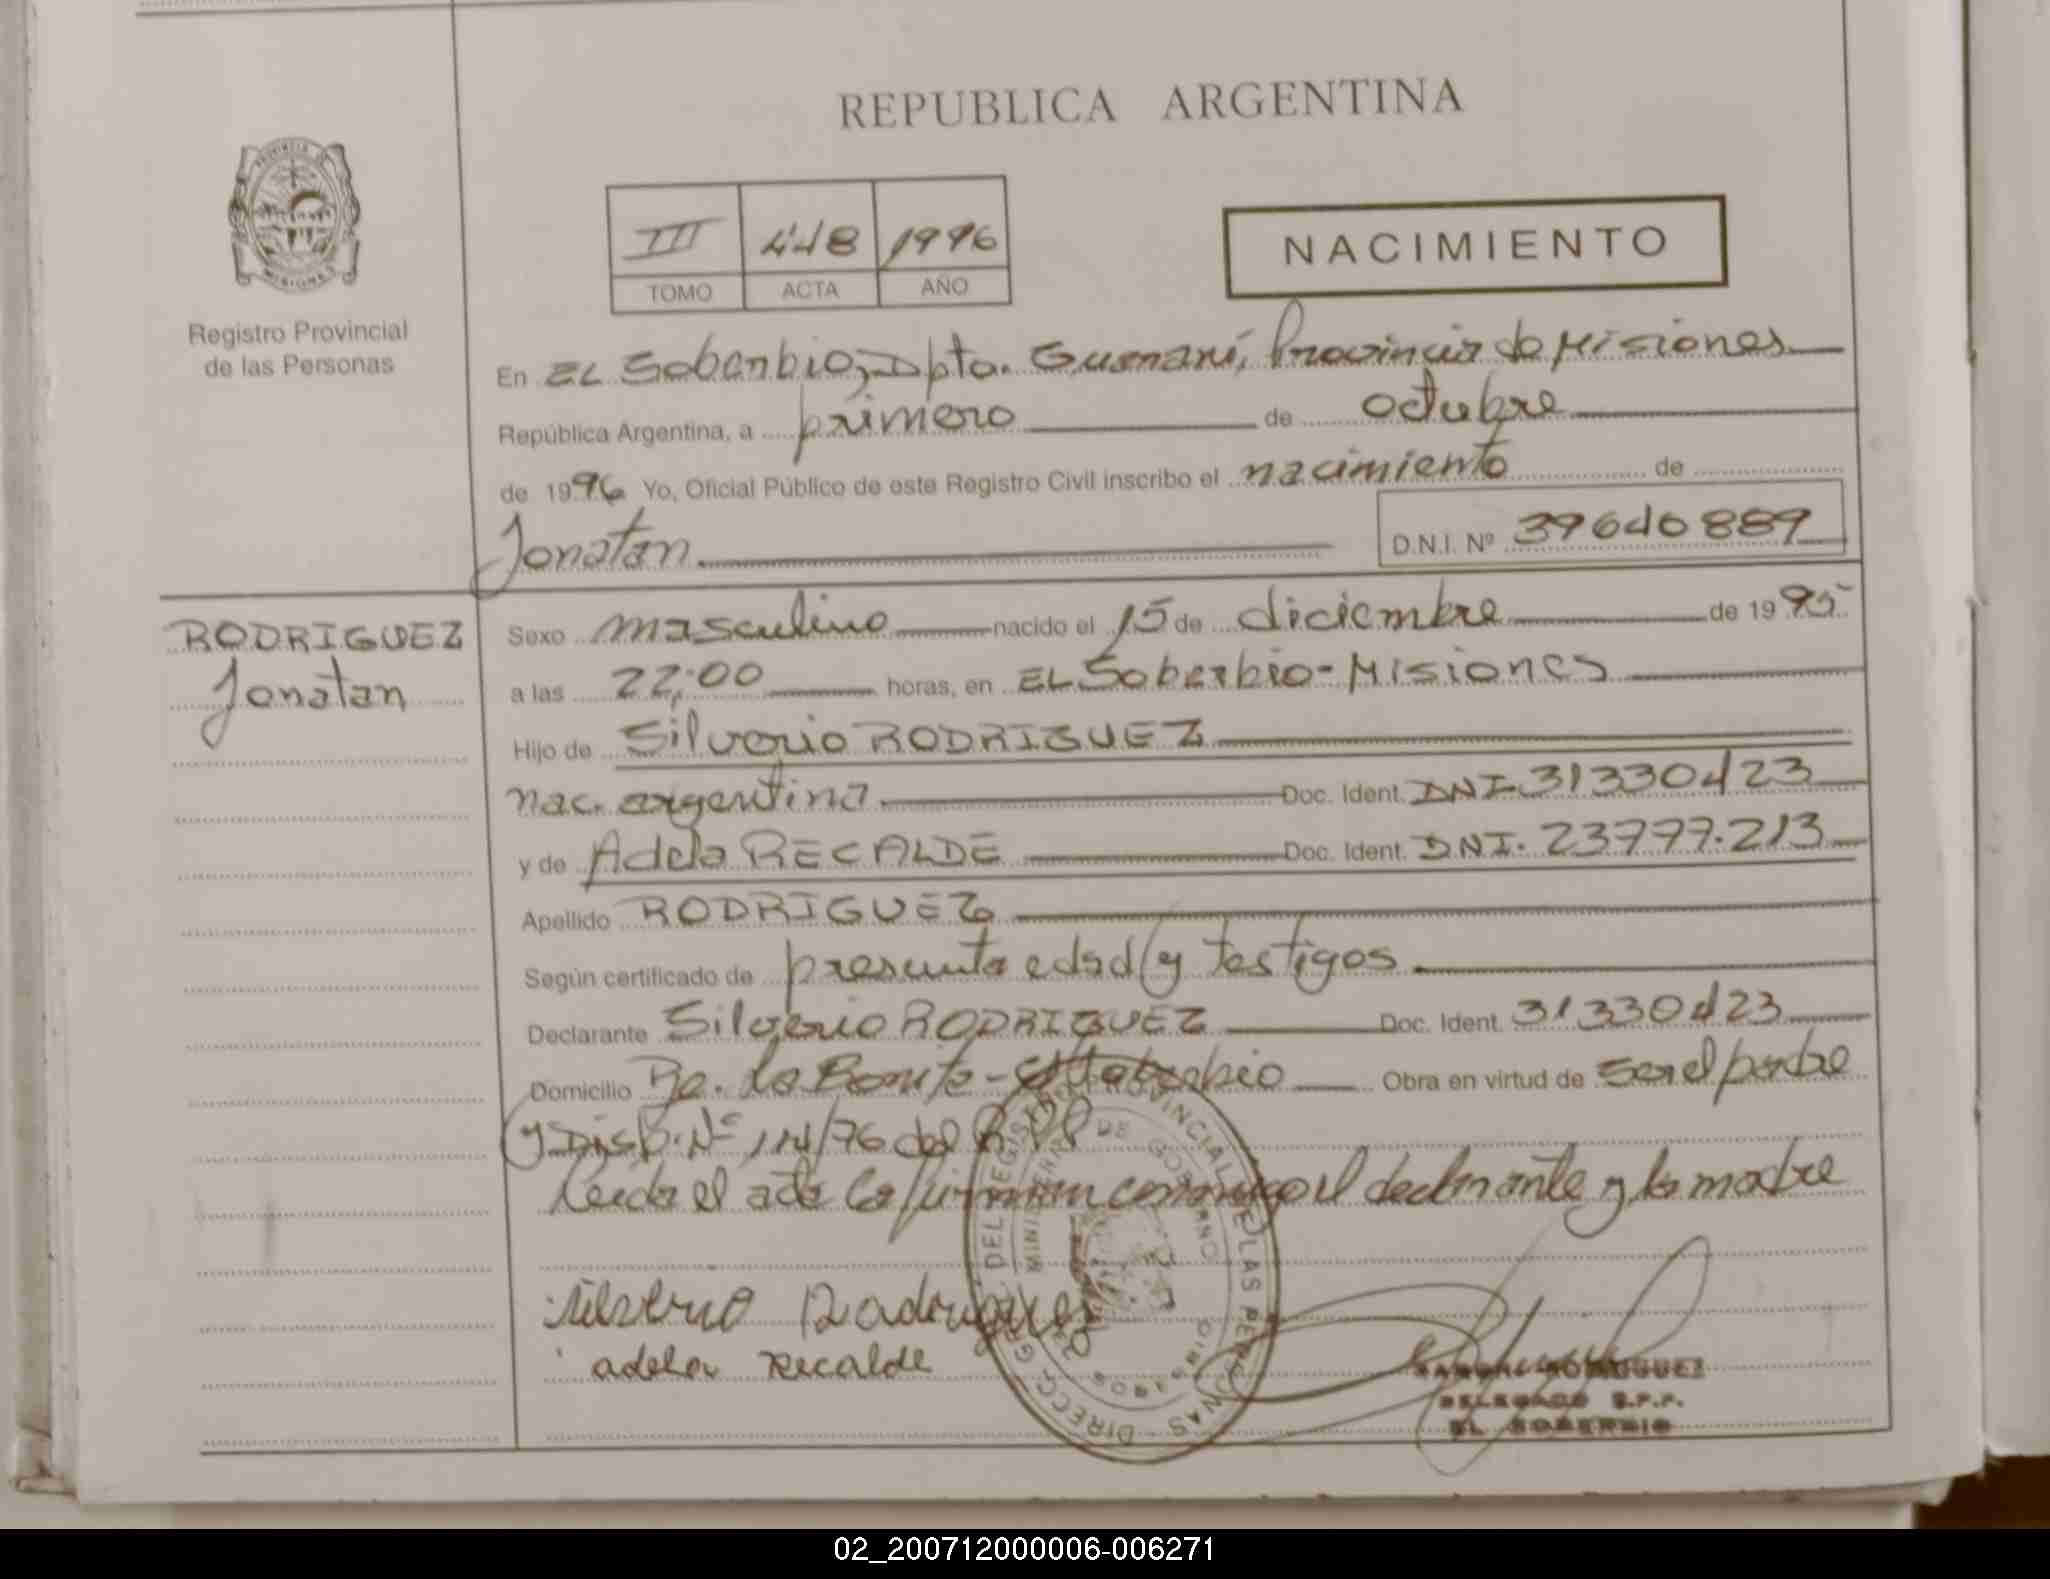 REPUBLICA ARGENTINA
PROVINCIA DE
MISIONES
Registro Provincial
de las Personas
III 448 1996
TOMO ACTA AÑO
NACIMIENTO
En EL Soberbio, Dpto. Guaraní, Provincia de Misiones
República Argentina, a primero de octubre
de 1996 Yo, Oficial Público de este Registro Civil inscribo el nacimiento de
Jonatan D.N.I. Nº 39640889
RODRIGUEZ
Jonatan
Sexo masculino nacido el 15 de diciembre de 1995
a las 22:00 horas, en EL Soberbio-Misiones
Hijo de Silverio RODRIGUEZ
nac. argentina Doc. Ident. DNI-31330423
y de Adela RECALDE Doc. Ident. DNI. 23777.213
Apellido RODRIGUEZ
Según certificado de presunta edad y testigos
Declarante Silverio RODRIGUEZ Doc. Ident. 31330423
Domicilio Pje. La Bonita - El Soberbio Obra en virtud de ser el padre
y Disp. Nº 114/76 del R.P.P
Leida el acta la firman conmigo el declarante y la madre
Silverio Rodriguez
adela Recalde
DIRECC. GRAL. DEL REGISTRO PROVINCIAL DE LAS PERSONAS
MINISTERIO DE GOBIERNO
RODRIGUEZ
DELEGADO R.P.P.
EL SOBERBIO
02_200712000006-006271